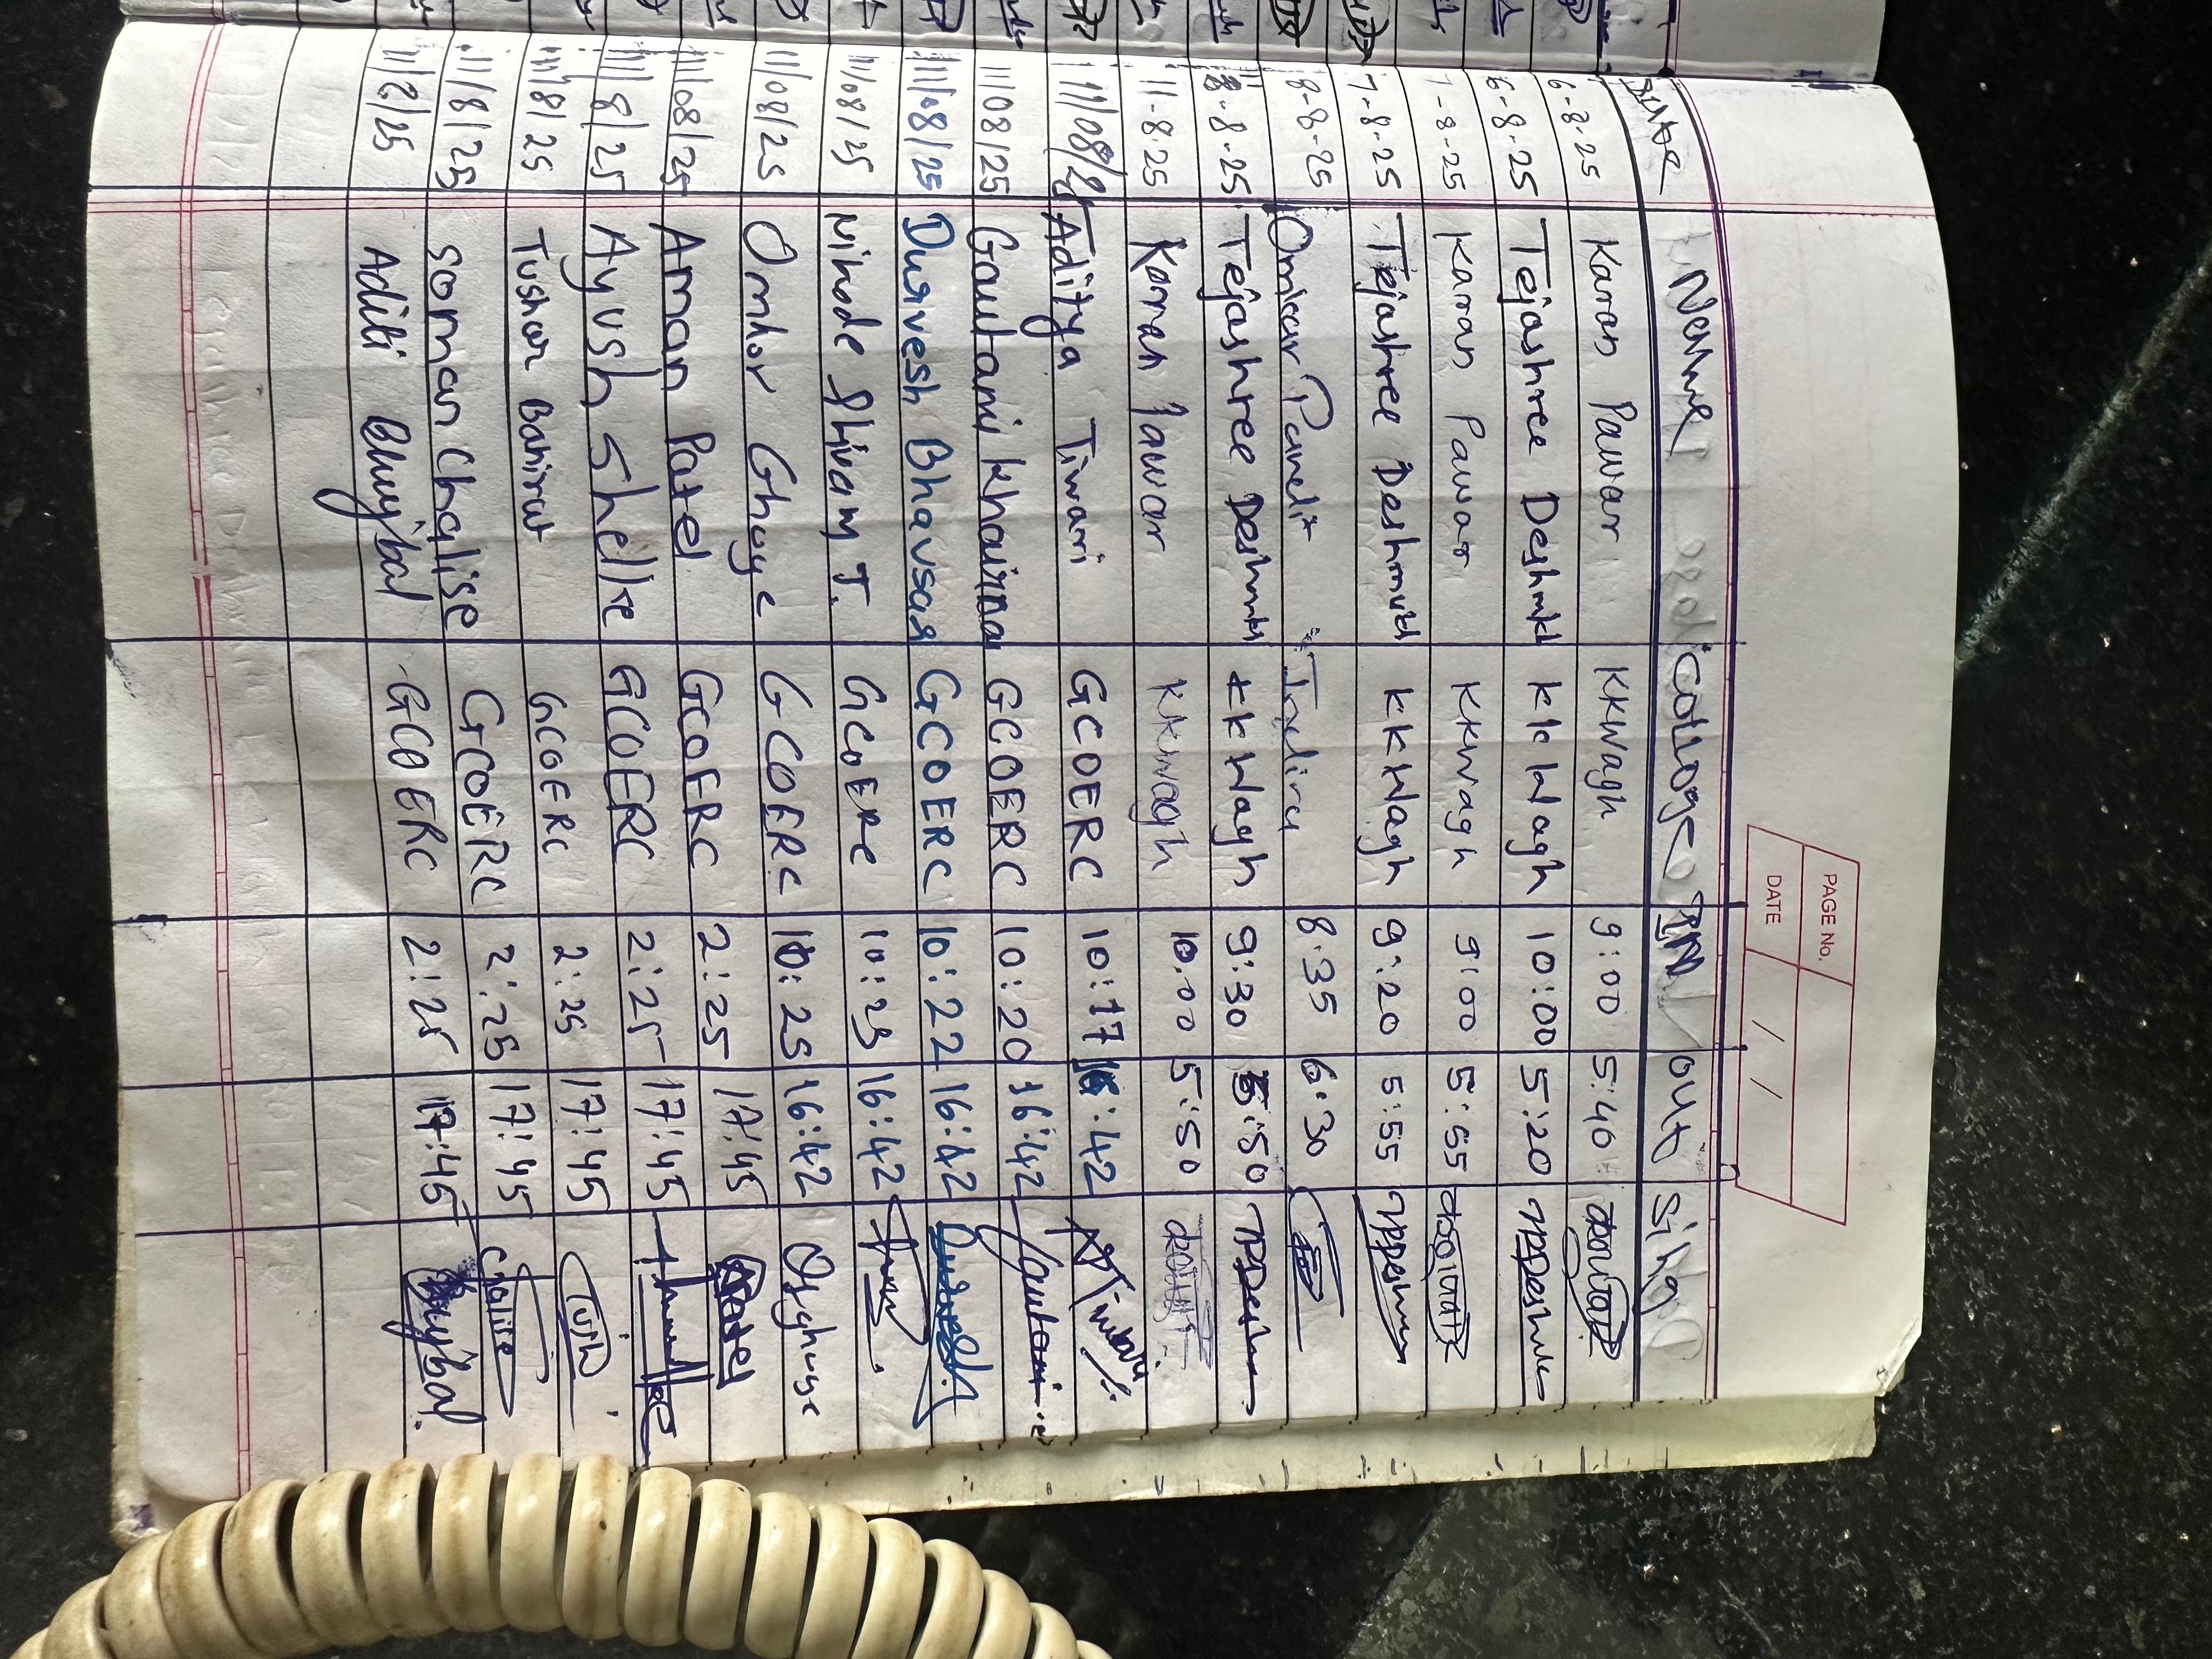 PAGE No.
DATE / /
Date Name college IN out sing
6-8-25 Karan Pawar KKWagh 9:00 5:40
6-8-25 Tejashree Deshmkh KK Wagh 10:00 5:20
7-8-25 Karan Pawar KKWagh 9:00 5:55
7-8-25 Tejashree Deshmukh KK Wagh 9:20 5:55
8-8-25 Omkar Pandit Indira 8:35 6:30
8-8-25 Tejashree Deshmukh KK Wagh 9:30 5:50
11-8-25 Karan Pawar KKWagh 10:00 5:50
11/08/25 Aditya Tiwari GCOERC 10:17 16:42
11/08/25 Gautami Khairna GCOERC 10:20 16:42 Gautami
11/08/25 Durvesh Bhavsar GCOERC 10:22 16:42 Durvesh
11/08/25 Nikode Shivam T. GCOERC 10:23 16:42
11/08/25 Omkar Ghuge GCOERC 10:25 16:42 Osghuge
11/08/25 Aman Patel GCOERC 2:25 17:45 Patel
11/8/25 Ayush Shelke GCOERC 2:25 17:45
11/8/25 Tushar Bahirat GCOERC 2:25 17:45
11/8/25 soman chalise GCOERC 2:25 17:45 chalise
11/8/25 Aditi Bhujbal GCOERC 2:25 17:45 Bhujbal